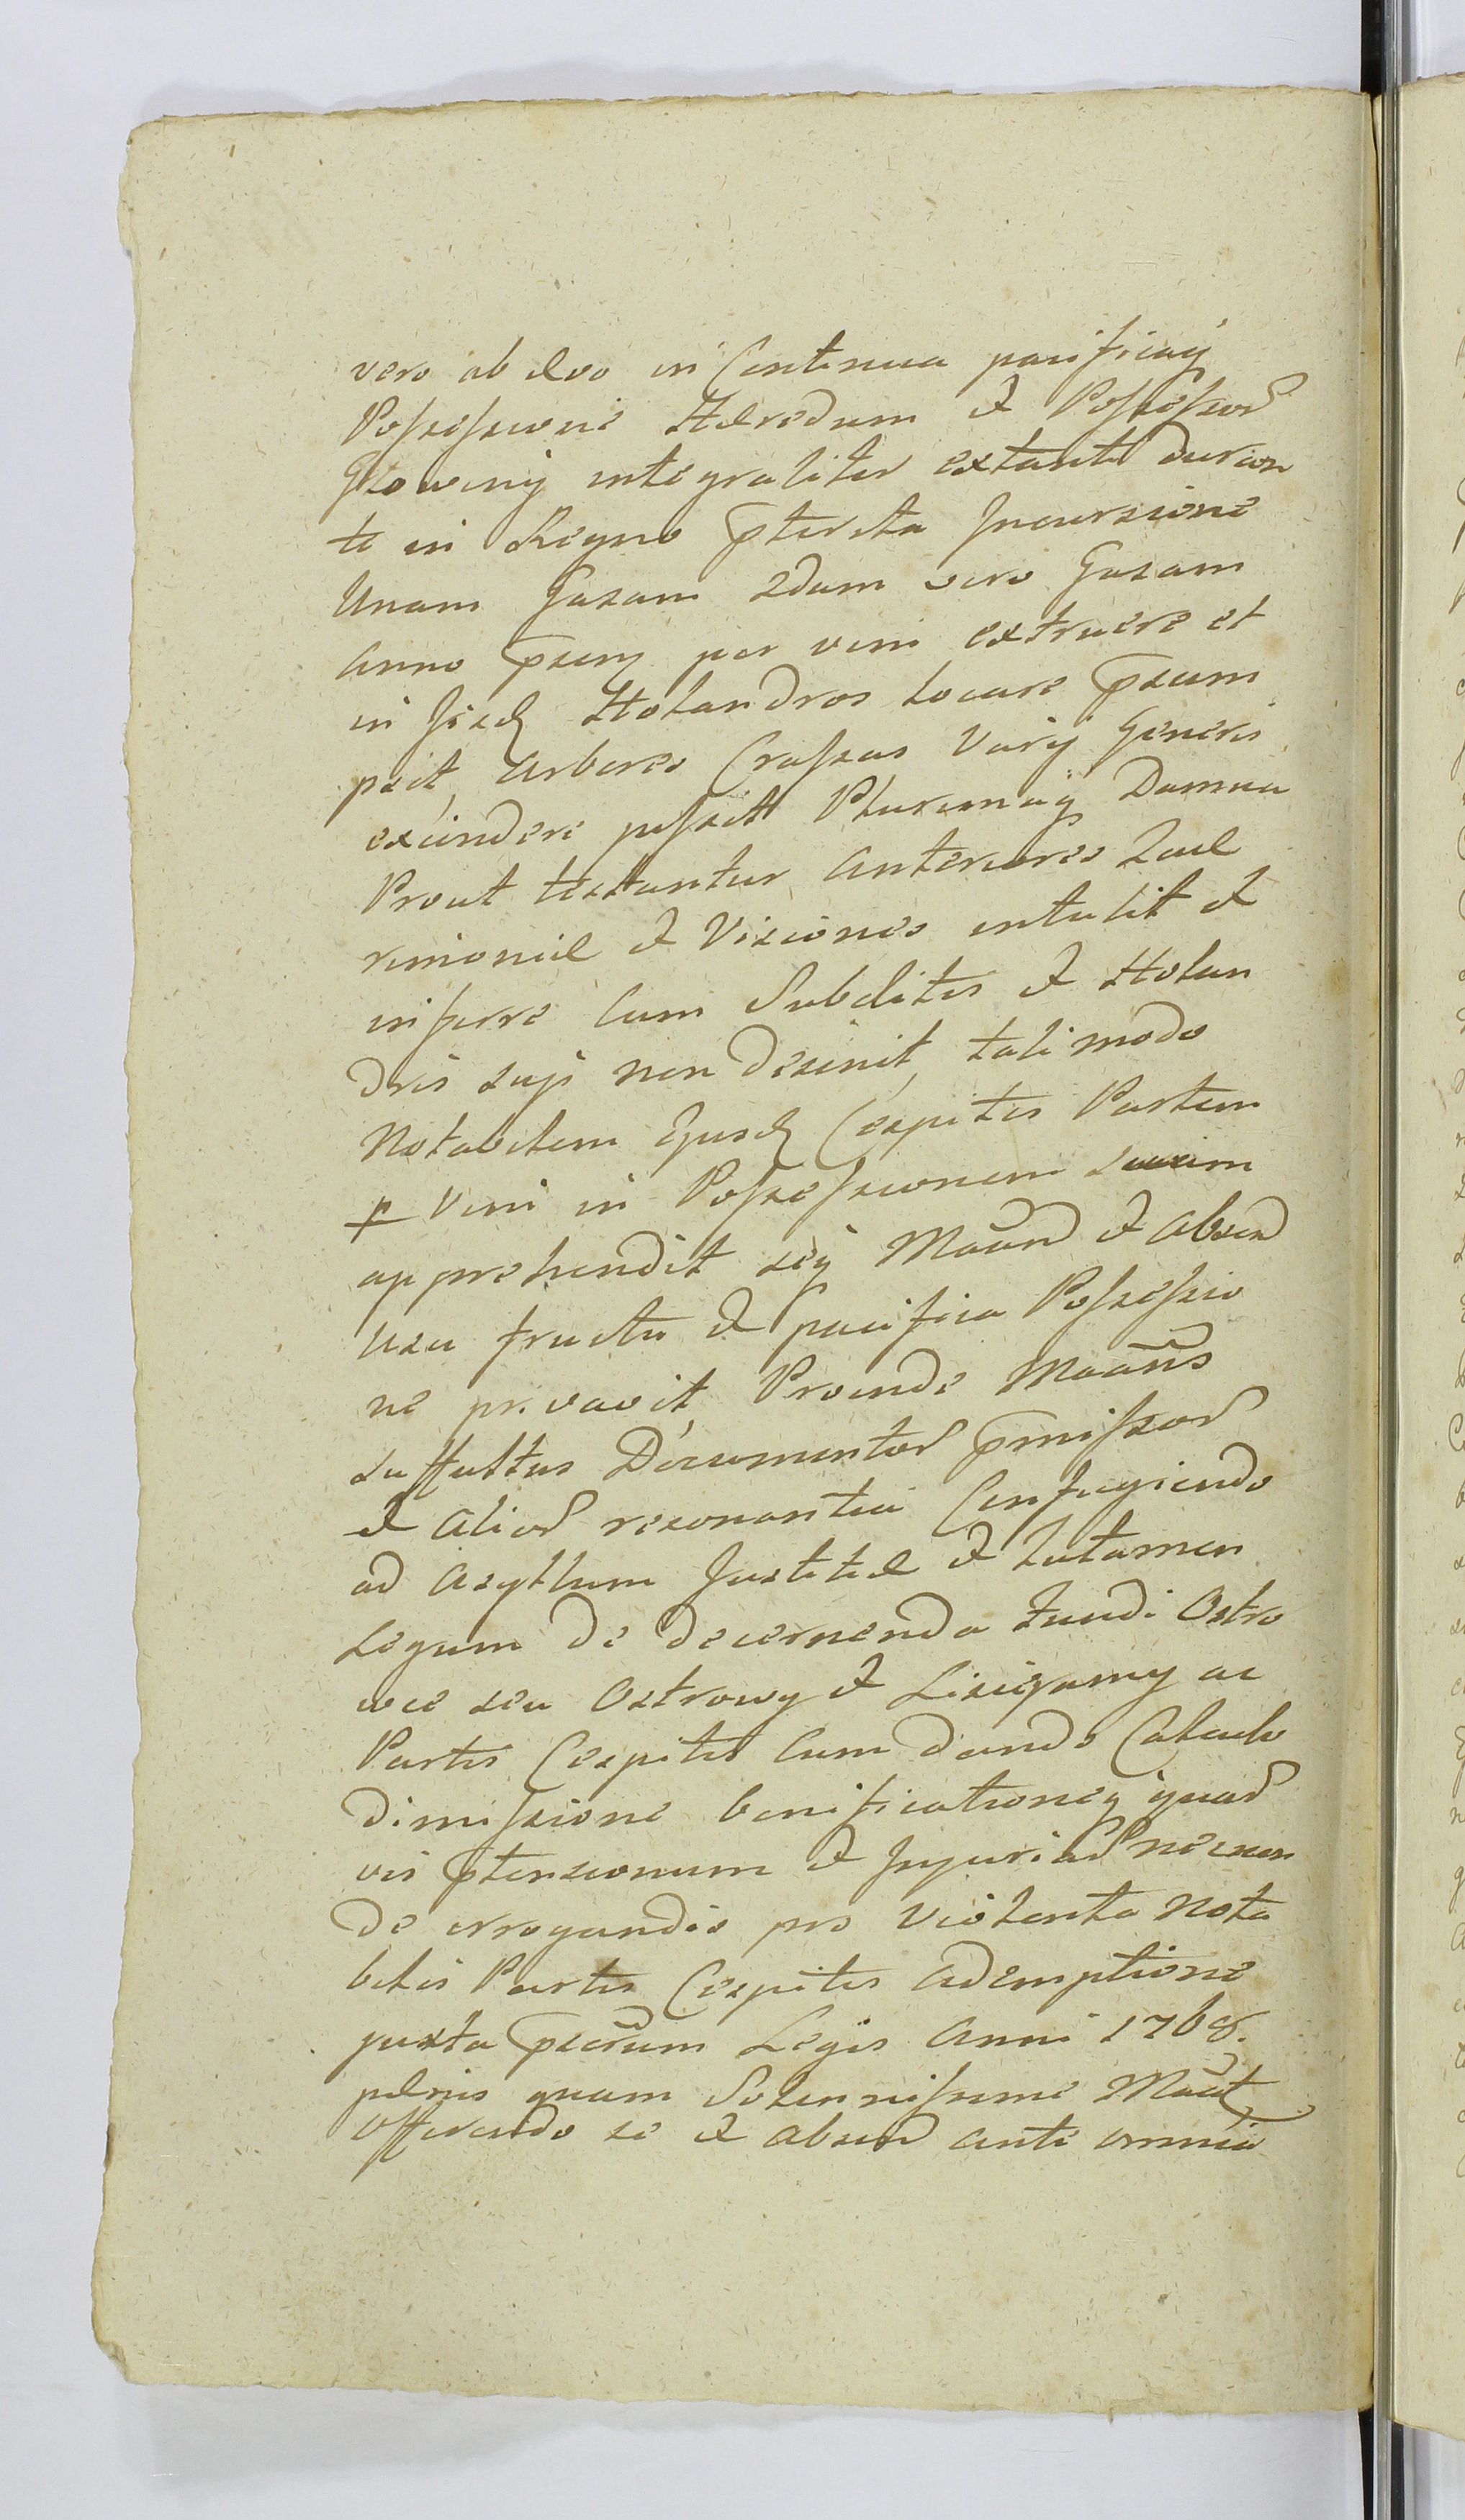 vero ab ævo in Continua pacificaq̃
Possessione Hæredum et Possessor̃
Głowiny integraliter extanti duran
te in Regno p̃terita Incursione
Unam Gazam 2dam vero Gazam
Anno p̃senq̃ per vim extruere et
in Iisdẽ Holandros locare p̃sum
psit, Arbores Crassas Varij Generis
exindere jussit Plurimaq̃ Damna
Prout testantur Anteriores Quæ
rimoniæ et Visiones intulit et
inferre Cum Subditis et Holan
dris suis non desinit, tali modo
Notabilem Ejusdẽ Cespitis Partem
p Vim in Possessionem suam
apprehendit seq̃ Maãnd et Absend
usu fructu et pacifica Possessio
ne privavit, Proinde Maãns
suffultus Documentor̃ p̃missor̃
et Alior̃ resonantia Confugiendo
ad Asyllum Justitiæ et tutamen
Legum de decernenda fundi Ostro
wie seu Ostrowy et Lisieyamy ac
Partis Cespitis Cum dando Calculo
dimissione bonificationeq̃ quar̃
vis p̃tensionum et Injuriar̃ necnon
de irrogandis pro Violenta Nota
bilis Partis Cespitis Ademptione
juxta p̃scr̃um Legis Anni 1768.
pænis quam Solennissime Maãt
Offerendo se et Absend ante omnia